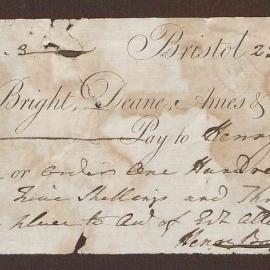 3 Bristol 2
Bright, Deane, Ames &
Pay to Henry
or order One Hundre
Five Shillings and Thr
place to Acct of
Henry